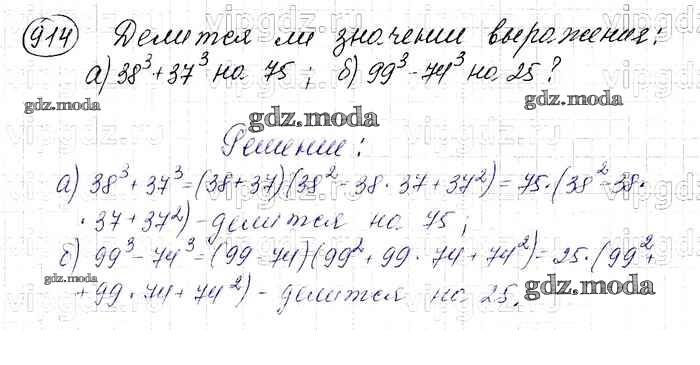 914 Делится ли значении выражения:
а) 38³ + 37³ на 75; б) 99³ - 74³ на 25?
gdz.moda
gdz.moda
Решение:
gdz.moda
а) 38³ + 37³ = (38 + 37)(38² - 38 · 37 + 37²) = 75 · (38² - 38 ·
· 37 + 37²) - делится на 75;
б) 99³ - 74³ = (99 - 74)(99² + 99 · 74 + 74²) = 25 · (99² +
gdz.moda
+ 99 · 74 + 74²) - делится на 25.
gdz.moda